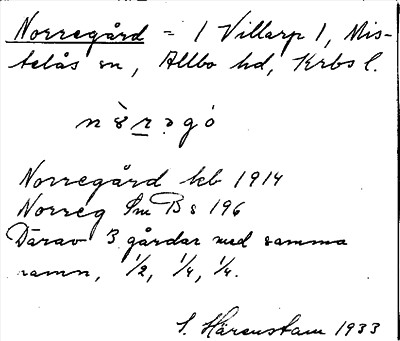 Norregård = 1 Villarp 1, Mis-
telås sn, Allbo hd, Krbs l.
Norregård kb 1914
Norreg Sm B s 196
Därav 3 gårdar med samma
namn, 1/2, 1/4, 1/4.
S. Härenstam 1933